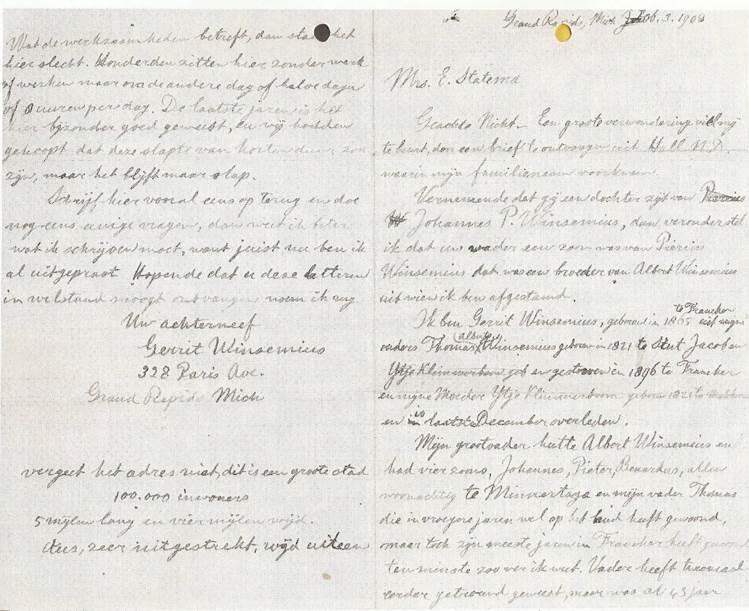 Wat de werkzaamheden betreft, dan staat het
hier slecht. Honderden zitten hier zonder werk
of werken maar om de andere dag of halve dagen
of 8 uuren per dag. De laatste jaren is het
hier bijzonder goed geweest, en wij hadden
gehoopt dat deze slapte van korten duur zou
zijn, maar het blijft maar slap.
Schrijf hier vooral eens op terug en doe
nog eens eenige vragen, dan weet ik beter
wat ik schrijven moet, want juist nu ben ik
al uitgepraat. Hopende dat u deze letteren
in welstand moogt ontvangen noem ik mij
Uw achterneef
Gerrit Winsemius
328 Paris Ave.
Grand Rapids Mich
vergeet het adres niet, dit is een groote stad
100.000 inwoners
5 mijlen lang en vier mijlen wijd.
dus, zeer uitgestrekt, wijd uiteen
Grand Rapids, Mich Feb. 3. 1908
Mrs. E. Statema
Geachte Nicht — Een groote verwondering viel mij
te beurt, don een brief te ontvangen uit Hull N.D.
waarin mijn familienaam voorkwam.
Vernemende dat gij een dochter zijt van
Johannes P. Winsemius, dan veronderstel
ik dat uw vader een zoon was van Piërius
Winsemius dat was een broeder van Albert Winsemius
uit wien ik ben afgestamd.
Ik ben Gerrit Winsemius, geboren in 1865 te Franeker uit mijn
vaders Thomas Alberts Winsemius geboren in 1821 te Stut Jacob en
Ytje Klimmerboom geb en gestorven in 1896 te Franeker
en mijne Moeder Ytje Klimmerboom geboren 1821 te
en is laatste December overleden.
Mijn grootvader hette Albert Winsemius en
had vier zoons, Johannes, Pieter, Benardus, allen
woonachtig te Minnertsga en mijn vader Thomas
die in vroegere jaren wel op het land heeft gewoond,
maar toch zijn meeste jaren in Franeker heeft gewoond
ten minste zoo ver ik weet. Vader heeft tweemaal
eerder getrouwd geweest, maar was al 43 jaar